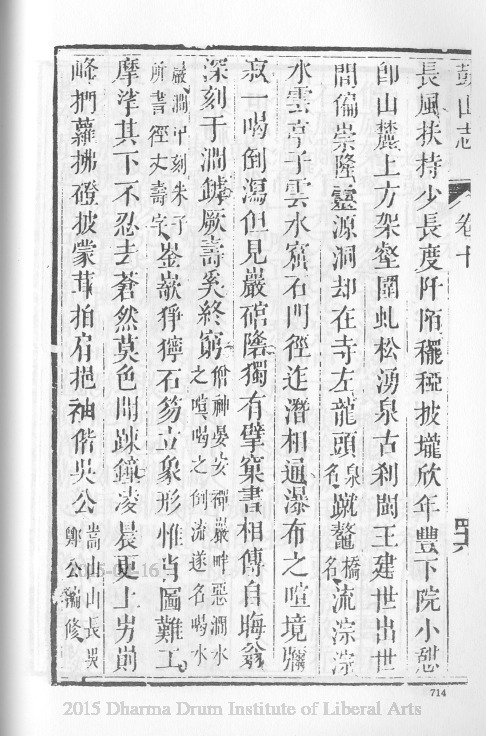 鼓山志 卷十 四六
長風扶持少長度阡陌䆉稏披壠欣年豐下院小憇
卽山麓上方架壑圍虬松湧泉古刹閩王建世出世
間偏崇隆靈源洞却在寺左龍頭泉名蹴鰲橋名流淙淙
水雲亭子雲水窟石門徑迮潛相通瀑布之喧境
寂一喝倒瀉但見巖陰獨有擘窠書相傳自晦翁
深刻于澗罅厥壽奚終窮僧神晏安禪巖畔惡澗水之喧喝之倒流遂名喝水
巖澗中刻朱子所書徑丈壽字崟嶔猙獰石笏立象形惟肖圖難工
摩挲其下不忍去蒼然莫色聞踈鐘凌晨更上屴崱
峰捫蘿拂磴披蒙茸拍肩挹袖偕吳公嵩山山長吳鄭公編修
714
2015 Dharma Drum Institute of Liberal Arts